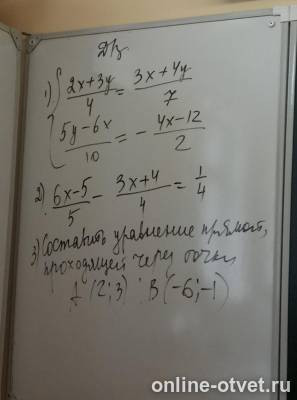 Дз
1) { (2x+3y)/4 = (3x+4y)/7
(5y-6x)/10 = - (4x-12)/2
2) (6x-5)/5 - (3x+4)/4 = 1/4
3) Составить уравнение прямой,
проходящей через точки
A (2; 3) B (-6; -1)
online-otvet.ru